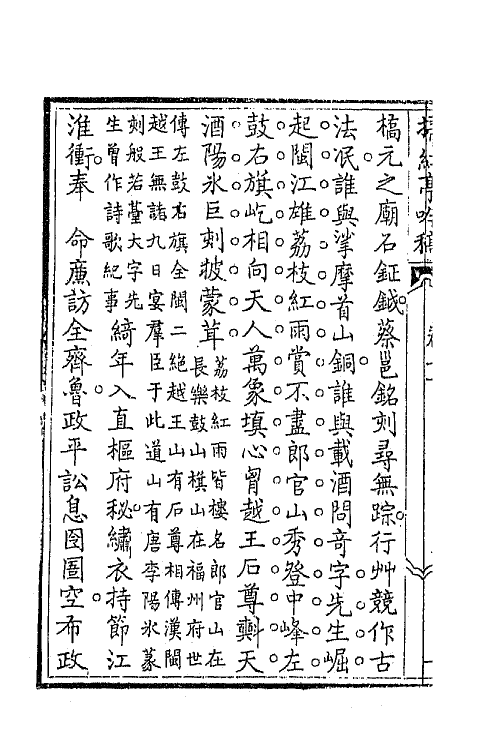 橋元之廟石鉦鉞蔡邕銘刻尋無踪行艸競作古
法泯誰與挲摩首山銅誰與載酒問奇字先生崛
起閩江雄荔枝紅雨賞不盡郎官山秀登中峰左
鼓右旗屹相向天人萬象填心胷越王石尊㪺天
酒陽氷巨刺披蒙茸
荔枝紅雨皆樓名郎官山在
長樂鼓山旗山在福州府世
傳左鼓右旗全閩二絕越王山有石尊相傳漢閩
越王無諸九日宴羣臣于此道山有唐李陽氷篆
刻般若臺大字先
生曾作詩歌紀事
綺年入直樞府秘繡衣持節江
淮衝奉 命廉訪全齊魯政平訟息囹圄空布政